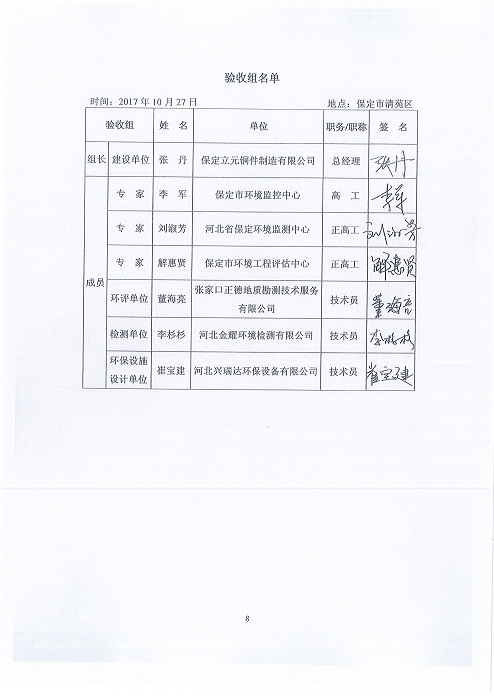 验收组名单
时间：2017 年 10 月 27 日 地点：保定市清苑区
验收组 姓 名 单位 职务/职称 签 名
组长 建设单位 张 丹 保定立元铜件制造有限公司 总经理 张丹
成员
专 家 李 军 保定市环境监控中心 高 工 李军
专 家 刘淑芳 河北省保定环境监测中心 正高工 刘淑芳
专 家 解惠贤 保定市环境工程评估中心 正高工 解惠贤
环评单位 董海亮 张家口正德地质勘测技术服务
有限公司 技术员 董海亮
检测单位 李杉杉 河北金耀环境检测有限公司 技术员 李杉杉
环保设施
设计单位 崔宝建 河北兴瑞达环保设备有限公司 技术员 崔宝建
8